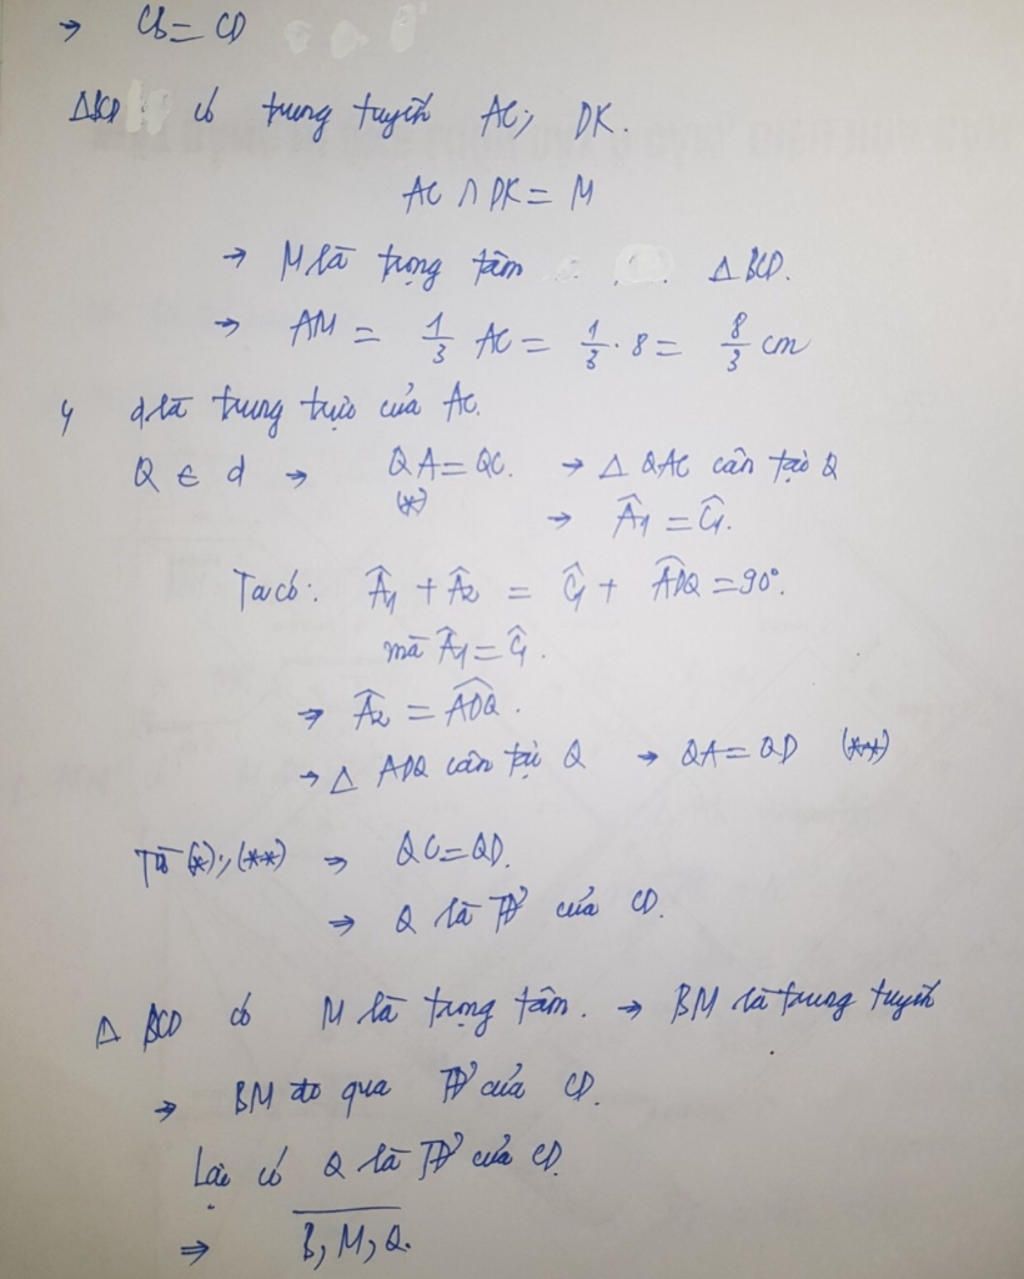 → CB = CD
ΔBCD có trung tuyến AC; DK.
AC ∩ DK = M
→ M là trọng tâm ΔBCD.
→ AM = 1/3 AC = 1/3 . 8 = 8/3 cm
d là trung trực của AC.
Q ∈ d → QA = QC. → Δ QAC cân tại Q
(*) → Â1 = Ĉ1.
Ta có: Â1 + Â2 = Ĉ1 + ADQ̂ = 90°.
mà Â1 = Ĉ1.
→ Â2 = ADQ̂.
→ Δ ADQ cân tại Q → QA = QD (**)
Từ (*); (**) → QC = QD.
→ Q là TĐ của CD.
Δ BCD có M là trọng tâm. → BM là trung tuyến
→ BM đi qua TĐ của CD.
Lại có Q là TĐ của CD.
⇒ B, M, Q.